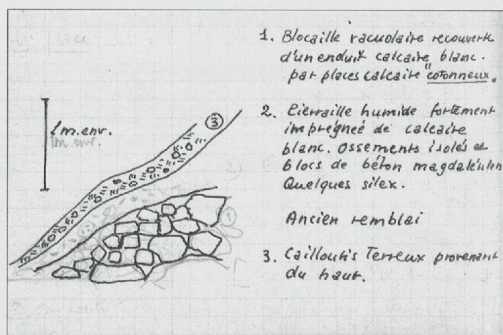 1. Blocaille vacuolaire recouverte
d'un enduit calcaire blanc.
par places calcaire "cotonneux"
2. Pierraille humide fortement
imprégnée de calcaire
blanc. Ossements isolés et
blocs de béton magdalénien
Quelques silex.
Ancien remblai
3. Cailloutis Terreux provenant
du haut.
1 m. env.
1m. env.
3
1